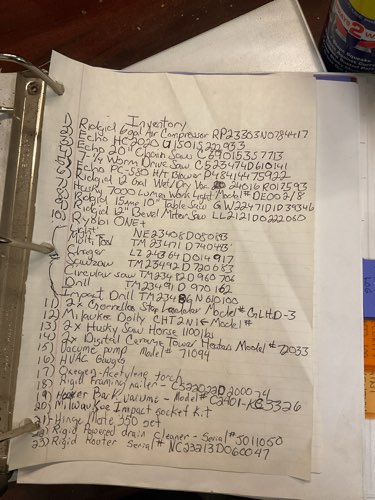 Inventory
1) Ridgid 6 gal Air Compressor RP23303N0784417
2) Echo HC2020
3) Echo 20" Chain Saw C69015357713
4) 7-¼ Worm Drive Saw C52347 4D610141
5) Echo PC-580 H/T Blower P48414475922
6) Ridgid 12 Gal Wet/Dry Vac 24016R017593
7) Husky 7000 Lumen Work Light Model# DE00218
8) Ridgid 15amp 10" Table Saw GW2247171D39346
9) Ridgid 12" Bevel Miter Saw LL2121D0222060
10) Ryobi ONE+
Light NE23408D080893
Multi Tool TM23471D740493
Charger LZ24364D014917
Sawzaw TM23492D720683
Circular saw TM23482D960706
Drill TM23491D970162
Impact Drill TM23486N610100
11) 2x Gorilla Step Model# GLHD-3
12) Milwaukee Dolly CHT2N1 Model#
13) 2x Husky Saw Horse 1100 lbs
14) 2x Digital Ceramic Tower Heaters Model# 72033
15) Vacume pump model# 71094
16) HVAC Guages
17) Oxegen-Acetylene torch
18) Rigid Framing nailer - CS22022D200074
19) Park vacume - Model# C2401-KC5326
20) Milwaukee Impact socket kit
21) Hinge Mate 350 set
22) Rigid Powered drain cleaner - Serial# J011050
23) Rigid Router serial# NC23213D060047
LOG